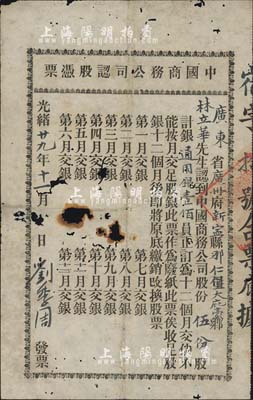 上海陽明拍賣
中國商務公司認股憑票
廣東省廣州府新寧縣那仁僅大
林立華先生認到中國商務公司股份伍份股
計銀通用銀壹佰員正訂為十二個月交
能按月交足股銀此票作為廢紙此票俟收足股
銀十二個月即將原底繳銷改換股票
第一月交銀 第七月交銀
第二月交銀 第八月交銀
第三月交銀 第九月交銀
第四月交銀 第十月交銀
第五月交銀 第十一月交銀
第六月交銀 第十二月交銀
光緒廿九年十一月 日 發票